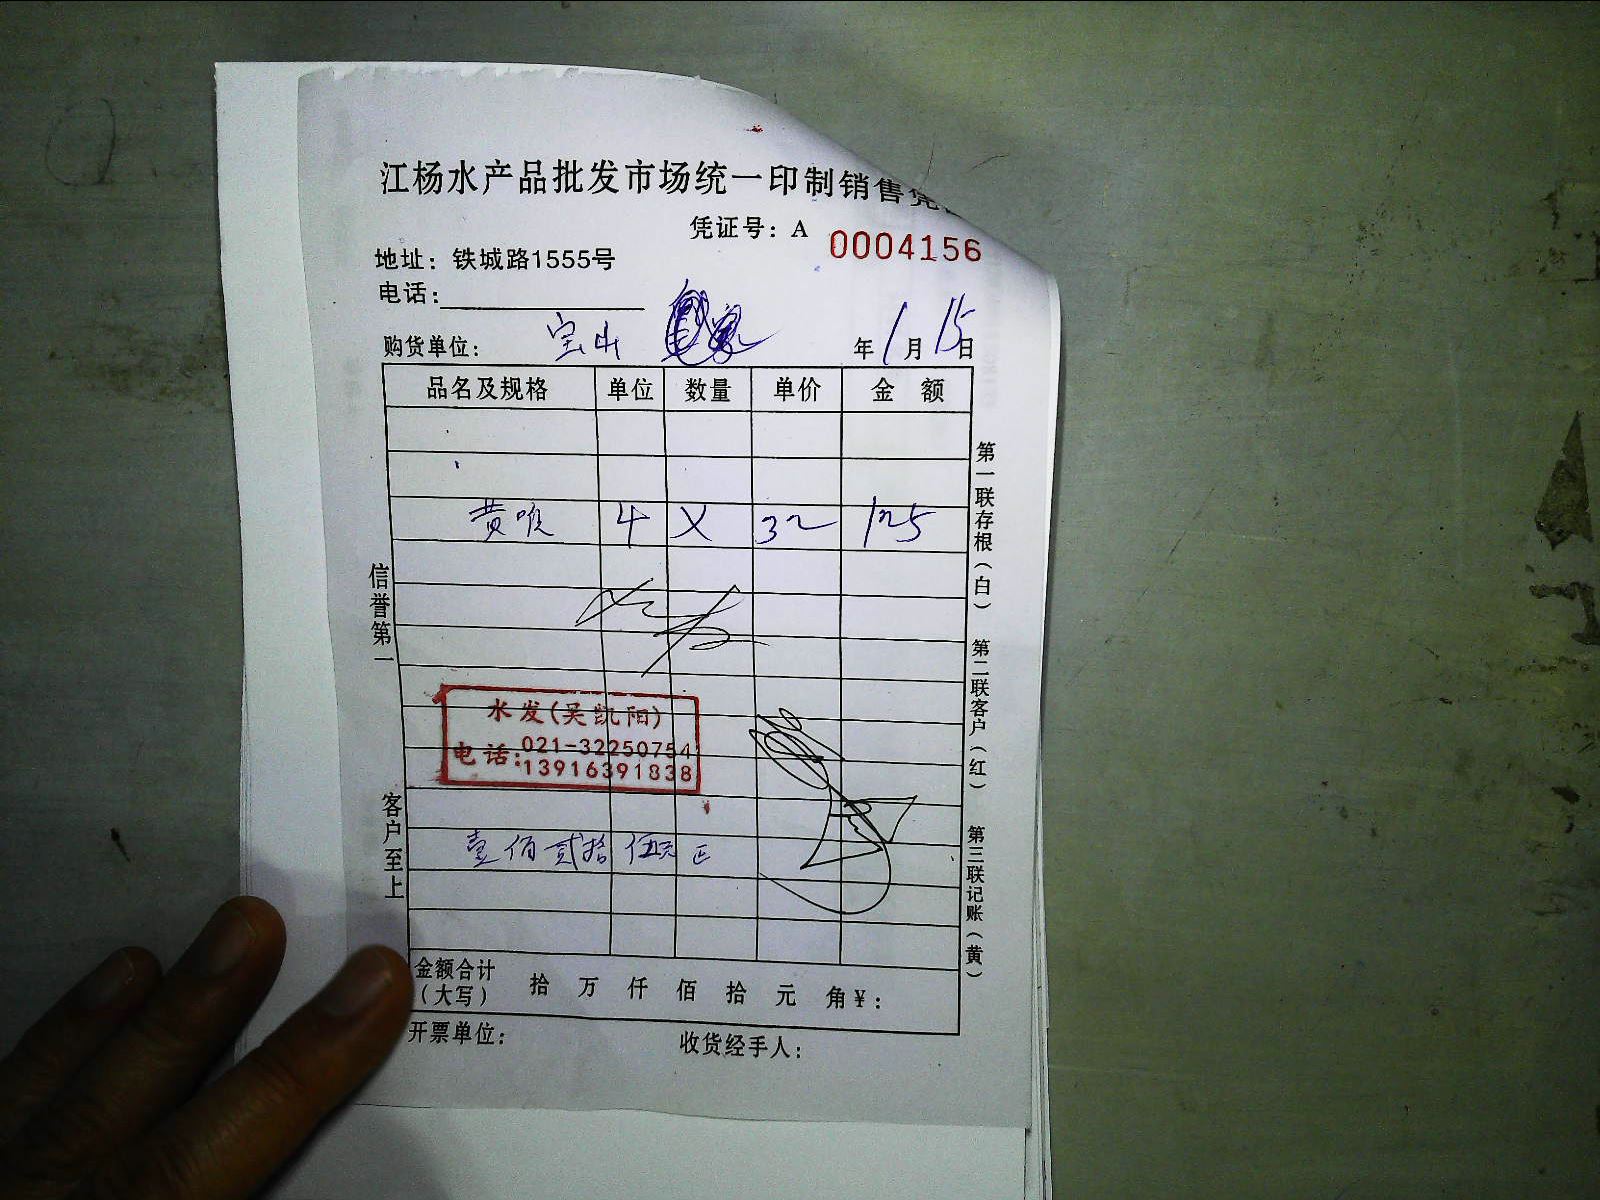 江杨水产品批发市场统一印制销售凭
凭证号：A 0004156
地址：铁城路1555号
电话：
购货单位：宝山 年1月15日
品名及规格 单位 数量 单价 金 额
4 X 32 125
水发(吴凯阳)
电话：021-32250754
13916391838
壹佰贰拾伍元正
金额合计
（大写） 拾 万 仟 佰 拾 元 角￥：
开票单位： 收货经手人：
信誉第一
客户至上
第一联存根(白)
第二联客户(红)
第三联记账(黄)